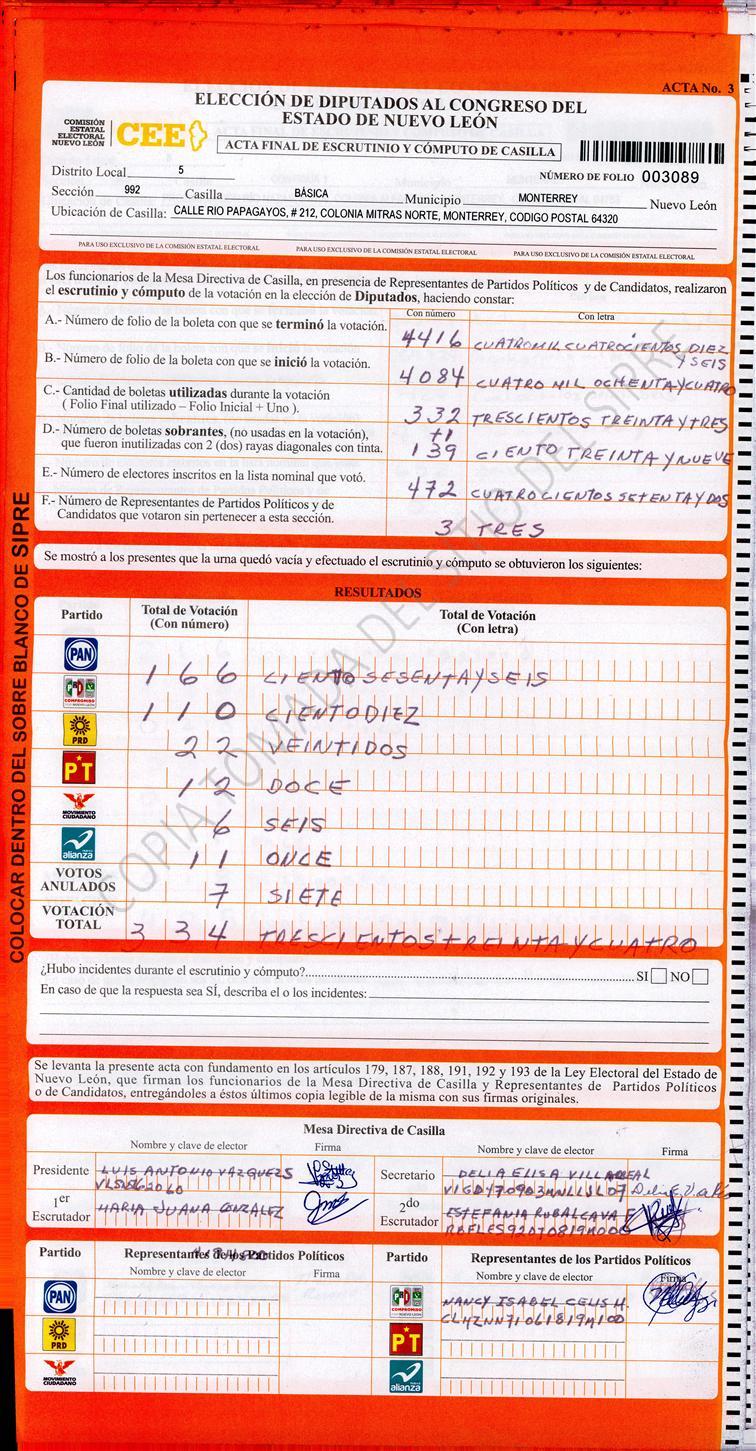 ACTA No. 3
ELECCIÓN DE DIPUTADOS AL CONGRESO DEL
ESTADO DE NUEVO LEÓN
COMISIÓN
ESTATAL
ELECTORAL
NUEVO LEÓN
CEE
ACTA FINAL DE ESCRUTINIO Y CÓMPUTO DE CASILLA
Distrito Local 5
NÚMERO DE FOLIO 003089
Sección 992 Casilla BÁSICA Municipio MONTERREY Nuevo León
Ubicación de Casilla: CALLE RIO PAPAGAYOS, # 212, COLONIA MITRAS NORTE, MONTERREY, CODIGO POSTAL 64320
PARA USO EXCLUSIVO DE LA COMISIÓN ESTATAL ELECTORAL PARA USO EXCLUSIVO DE LA COMISIÓN ESTATAL ELECTORAL PARA USO EXCLUSIVO DE LA COMISIÓN ESTATAL ELECTORAL
Los funcionarios de la Mesa Directiva de Casilla, en presencia de Representantes de Partidos Políticos y de Candidatos, realizaron
el escrutinio y cómputo de la votación en la elección de Diputados, haciendo constar:
Con número Con letra
A.- Número de folio de la boleta con que se terminó la votación. 4416 CUATRO MIL CUATROCIENTOS DIEZ
Y SEIS
B.- Número de folio de la boleta con que se inició la votación. 4084 CUATRO MIL OCHENTA Y CUATRO
C.- Cantidad de boletas utilizadas durante la votación
( Folio Final utilizado – Folio Inicial + Uno ). 332 TRESCIENTOS TREINTA Y TRES
+1
D.- Número de boletas sobrantes, (no usadas en la votación),
que fueron inutilizadas con 2 (dos) rayas diagonales con tinta. 139 CIENTO TREINTA Y NUEVE
E.- Número de electores inscritos en la lista nominal que votó. 472 CUATROCIENTOS SETENTA Y DOS
F.- Número de Representantes de Partidos Políticos y de
Candidatos que votaron sin pertenecer a esta sección. 3 TRES
Se mostró a los presentes que la urna quedó vacía y efectuado el escrutinio y cómputo se obtuvieron los siguientes:
RESULTADOS
Partido Total de Votación Total de Votación
(Con número) (Con letra)
PAN 166 CIENTO SESENTA Y SEIS
PRI COMPROMISO 110 CIENTO DIEZ
PRD 22 VEINTIDOS
PT 12 DOCE
MOVIMIENTO CIUDADANO 6 SEIS
alianza 11 ONCE
VOTOS
ANULADOS 7 SIETE
VOTACIÓN
TOTAL 334 TRESCIENTOS TREINTA Y CUATRO
¿Hubo incidentes durante el escrutinio y cómputo? SI NO
En caso de que la respuesta sea SÍ, describa el o los incidentes:
Se levanta la presente acta con fundamento en los artículos 179, 187, 188, 191, 192 y 193 de la Ley Electoral del Estado de
Nuevo León, que firman los funcionarios de la Mesa Directiva de Casilla y Representantes de Partidos Políticos
o de Candidatos, entregándoles a éstos últimos copia legible de la misma con sus firmas originales.
Mesa Directiva de Casilla
Nombre y clave de elector Firma Nombre y clave de elector Firma
Presidente LUIS ANTONIO VAZQUEZ S Secretario DELIA ELISA VILLARREAL
1er
Escrutador MARIA JUANA GONZALEZ 2do
Escrutador ESTEFANIA RUBALCAVA F
Partido Representantes de los Partidos Políticos Partido Representantes de los Partidos Políticos
Nombre y clave de elector Firma Nombre y clave de elector Firma
PAN PRI COMPROMISO NANCY ISABEL CELIS M.
PRD PT
MOVIMIENTO CIUDADANO alianza
COLOCAR DENTRO DEL SOBRE BLANCO DE SIPRE
COPIA TOMADA DEL SITIO DEL SIPRE